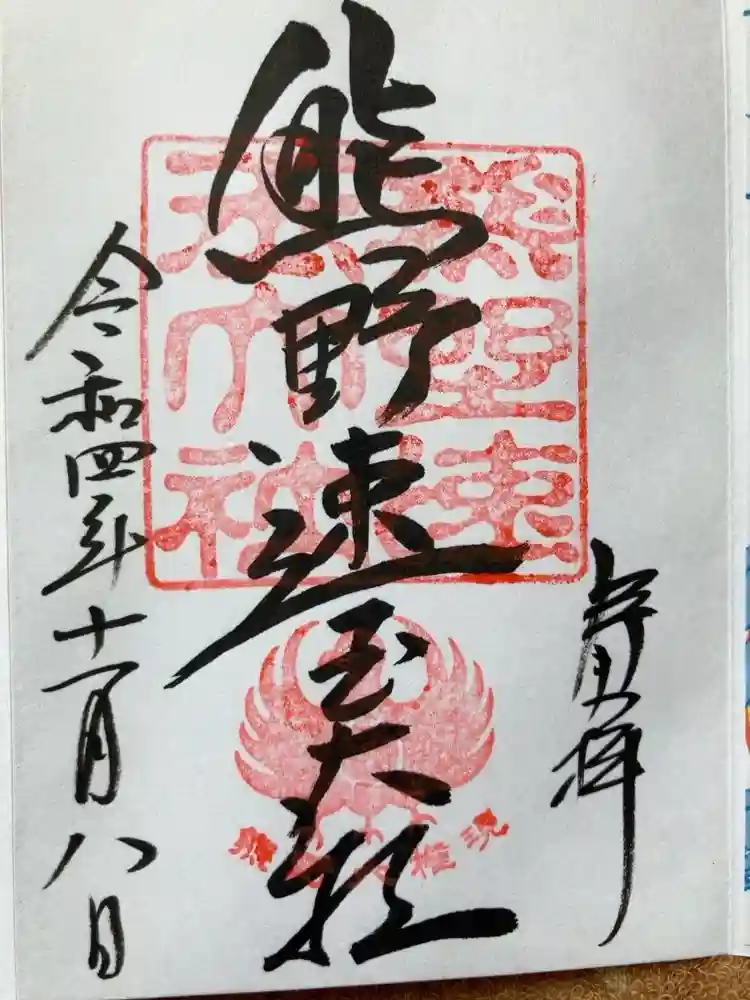 奉拝
熊野速玉大社
熊野速玉大社
熊野権現
令和四年十一月八日